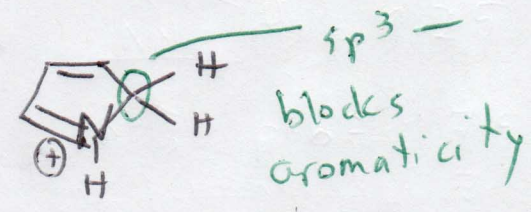 sp³ —
H
blocks
H
aromaticity
N
⊕
H